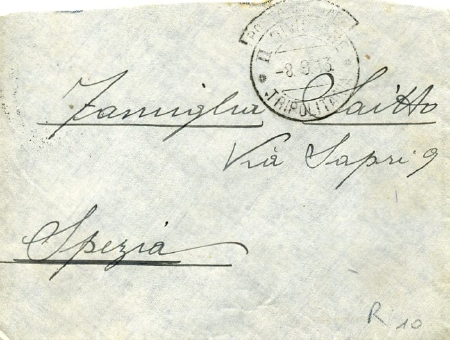 II
-8.9.13
TRIPOLITA
Famiglia Saitto
Via Sapri 9
Spezia
R 10